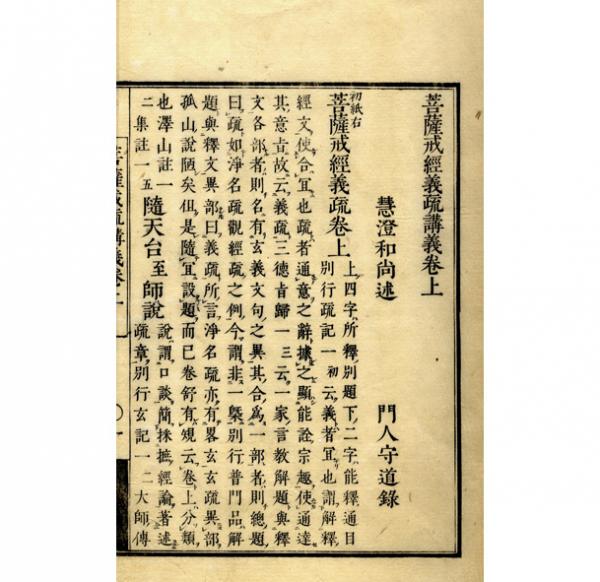 菩薩戒經義疏講義卷上
慧澄和尚述　門人守道錄
初紙右
菩薩戒經義疏卷上
上四字所釋別題下二字能釋通目
別行疏記一初云義者宜也謂解釋
經文使合宜也疏者通意之辭據之顯能詮宗趣使通達
其意旨故云義疏三德旨歸一三云一家言教解題與釋
文各部者則名有玄義文句之異其合爲一部者則總題
曰疏如淨名疏觀經疏之例今謂非一槩別行普門品解
題與釋文異部曰義疏所言淨名疏亦有畧玄玄疏異部
孤山說陋矣但是隨宜設題而已卷舒有規云卷上分類
也澤山註一
二集註一五
隨天台至師說
說謂口談簡採摭經論著述
疏章別行玄記一二大師傳
菩薩戒疏講義卷上
○一